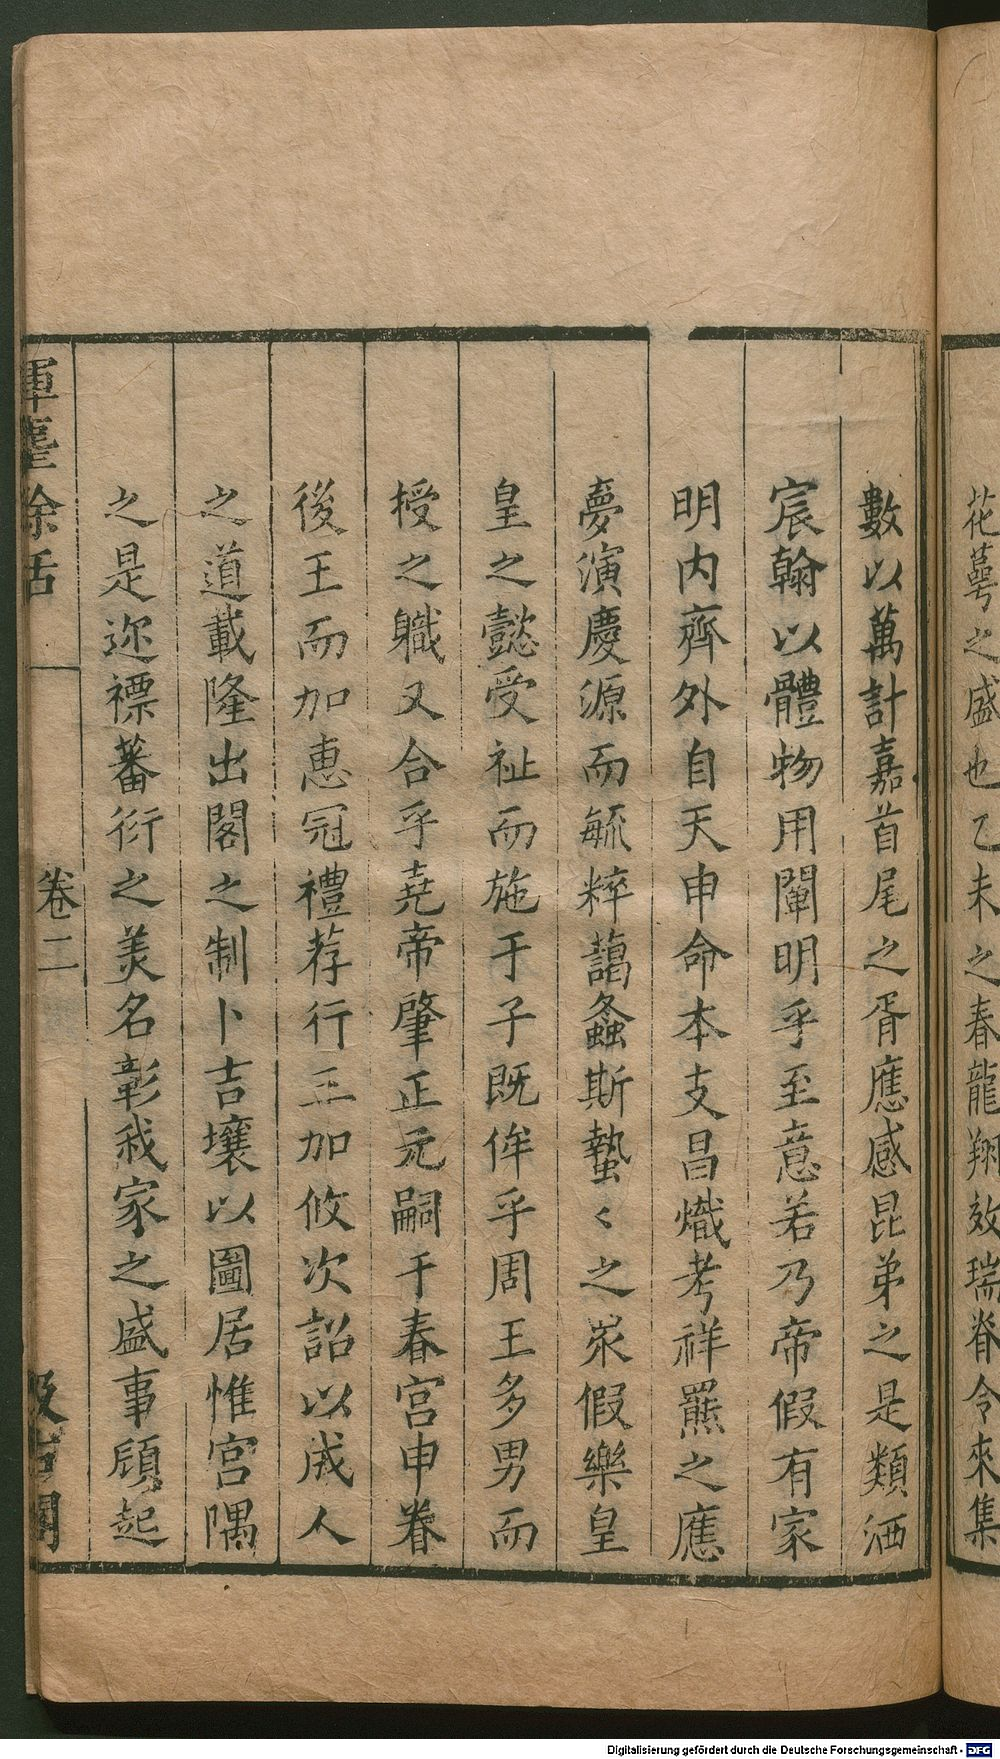 花萼之盛也乙未之春龍翔效瑞脊令來集
數以萬計嘉首尾之胥應感昆弟之是類洒
宸翰以體物用闡明乎至意若乃帝假有家
明内齊外自天申命本支昌熾考祥羆之應
夢演慶源而毓粹藹螽斯蟄〻之衆假樂皇
皇之懿受祉而施于子既侔乎周王多男而
授之職又合乎堯帝肇正元嗣于春宮申眷
後王而加惠冠禮荐行三加攸次詔以成人
之道載隆出閣之制卜吉壤以圖居惟宮隅
之是邇褾蕃衍之美名彰我家之盛事頎起
揮麈餘話
卷二
汲古閣
Digitalisierung gefördert durch die Deutsche Forschungsgemeinschaft - DFG